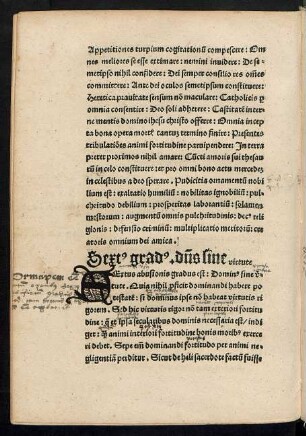 Appetitiones turpium cogitationũ compescere: Om
nes meliores se esse extimare: nemini inuidere: De se
metipso nihil confidere: Dei semper consilio res om̃es
committere: Ante dei oculos semetipsum constituere:
Heretica prauitate sensum nõ maculare: Catholicis ꝑ
omnia consentire: Deo soli adherere: Castitatẽ inter
ne mentis domino ihesu christo offerre: Omnia incep
ta bona opera morte tantus termino finire: Presentes
tribulatiões animi fortitudine parripendere: In terra
preter proximos nihil amare: Cũcti amoris sui thesau
rũ in celo constituere: et pro omni bono actu mercedez
in celestibus a deo sperare. Pudicitia ornamentũ nobi
lium est: exaltatio humiliũ: nobilitas ignobiliũ: pul
chritudo debilium: prosperitas laborantiũ: solamen
mestorum: augmentũ omnis pulchritudinis: decꝰ reli
gionis: defensio criminũ: multiplicatio meritorũ: cre
atoris omnium dei amica.
Sextꝰ gradꝰ. dñs sine virtute
Extus abusionis gradus est: Dominꝰ sine v̓
tute. Quia nihil ꝓficit dominandi habere po
testatẽ: si dominus ipse nõ habeat virtutis ri
gorem. Sed hic virtutis rigor nõ tam exteriori fortitu
dine: q̃ et ipsa secularibus dominis necessaria est: indi
get: ꝙ animi interiori fortitudine bonis moribꝰ exerce
ri debet. Sepe em̃ dominandi fortitudo per animi ne
gligentiã perditur. Sicut de heli sacerdote factũ fuisse